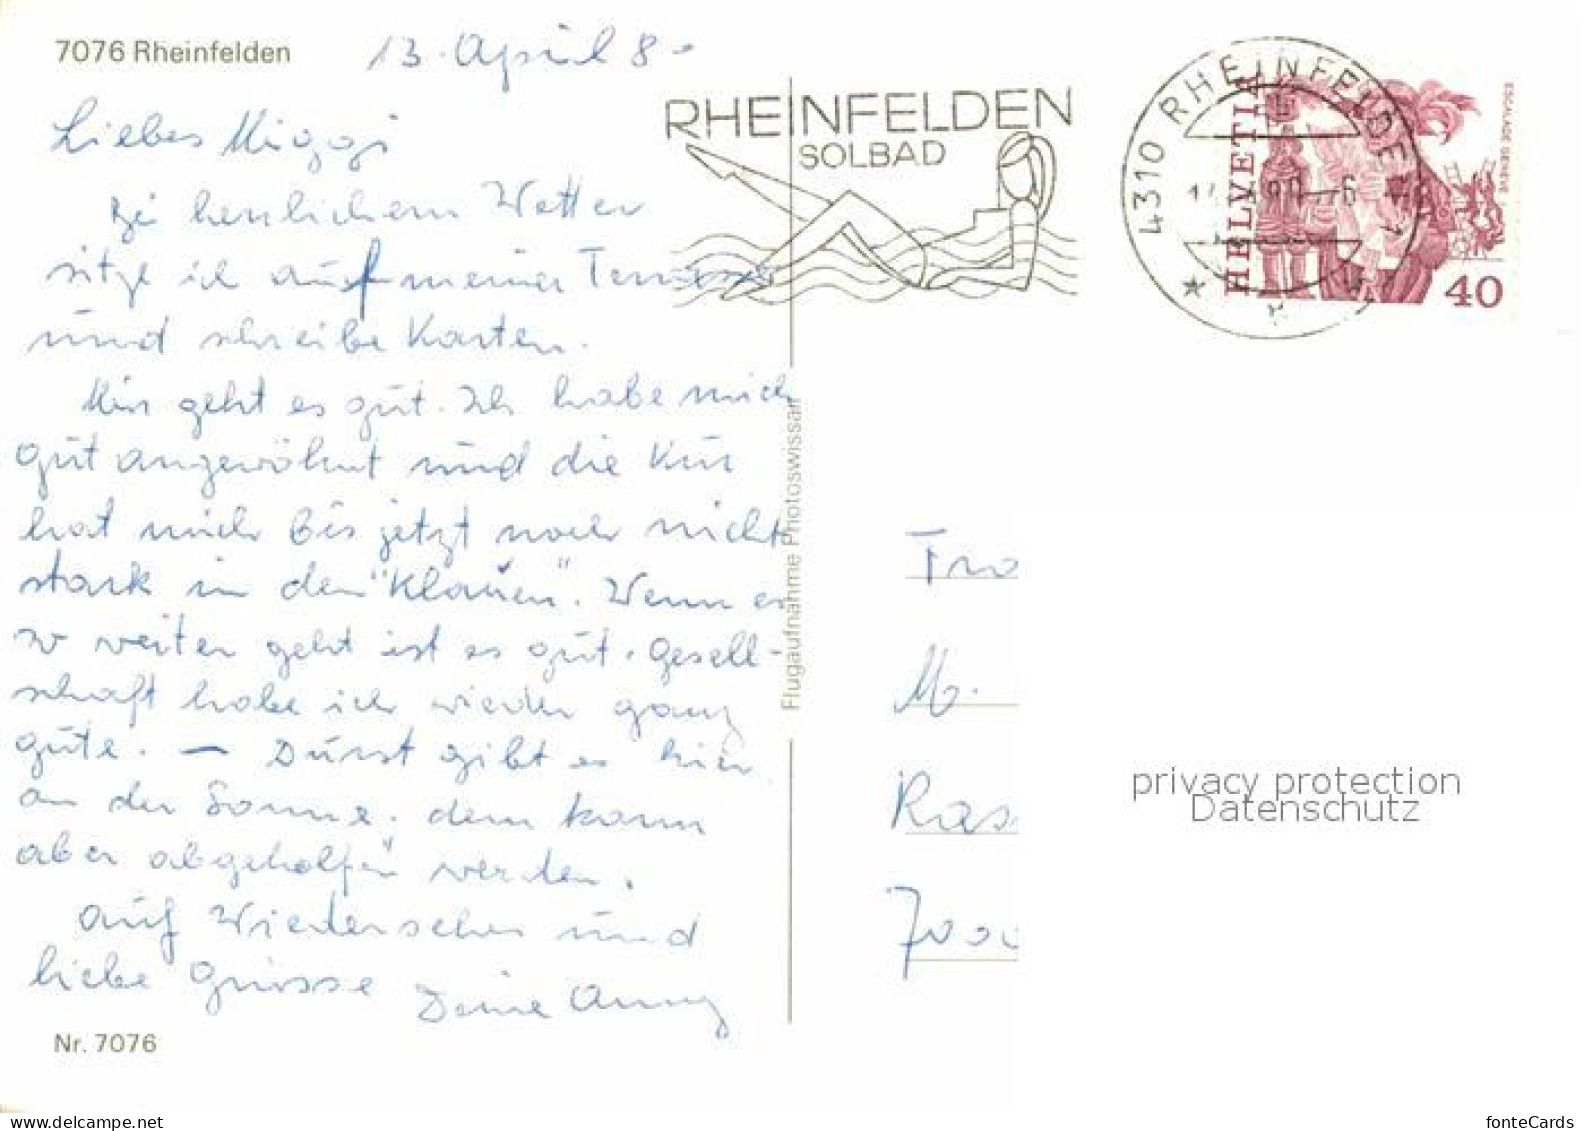 7076 Rheinfelden
13. April 80
RHEINFELDEN
SOLBAD
4310 RHEINFELDEN 1
HELVETIA
ESCALADE GENEVE
40
Liebes Miggi
Bei herrlichem Wetter
sitze ich auf meiner Terrasse
und schreibe Karten.
Mir geht es gut. Ich habe mich
gut angewöhnt und die Kur
hat mich bis jetzt noch nicht
stark in den "Klauen". Wenn es
so weiter geht ist es gut. Gesell-
schaft habe ich wieder ganz
gute. — Durst gibt es hier
an der Sonne. dem kann
aber abgeholfen werden.
Auf Wiedersehen und
liebe Grüsse Deine Anny
Nr. 7076
Flugaufnahme Photoswissair
Fra
M.
Ras
7000
privacy protection
Datenschutz
delcampe.net
fonteCards